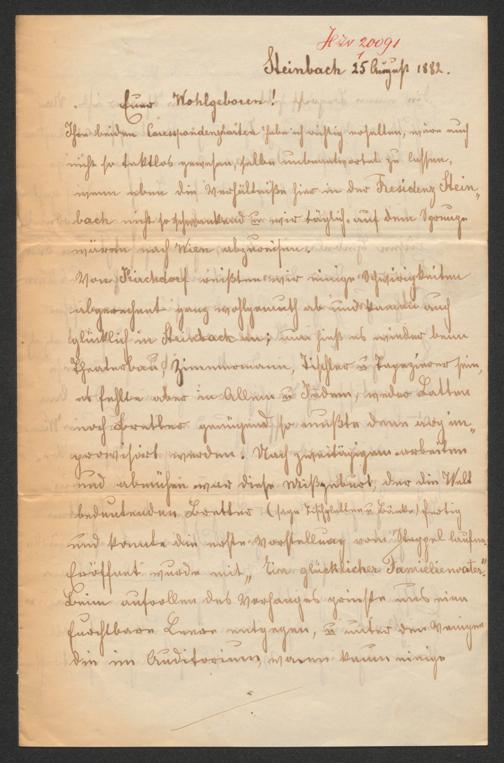 HIN 20091
Steinbach 25 August 1882.
Euer Wohlgeboren!
Ihre beiden Correspondenzkarten habe ich richtig erhalten, wäre auch
nicht so taktlos gewesen, selbe unbeantwortet zu lassen,
wenn eben die Verhältniße hier in der Residenz Stein„
bach nicht so schwankend u wir täglich auf dem Sprunge
wären nach Wien abzureisen.
Von Kirchdorf reißten wir einige Schwirigkeiten
abgerechnet ganz wohlgemuth ab und kamen auch
glücklich in Steinbach an; nun hieß es wieder beim
Theaterbau Zimmermann, Tischler u Tapezierer sein,
es fehlte aber in Allem u Jedem, weder Latten
noch Bretter genügend, so mußte denn arg im„
provisirt werden. Nach zweitägigem arbeiten
und abmühen war diese Mißgeburt, der die Welt
bedeutenden Bretter (sage Tischplatten u Bänke) fertig
und konnte die erste Vorstellung vom Stappel laufen.
Eröffnet wurde mit „Ein glücklicher Familienvater".
Beim aufrollen des Vorhanges grinste uns eine
furchtbare Leere entgegen, u unter den Wenigen
die im Auditorium, waren kaum einige